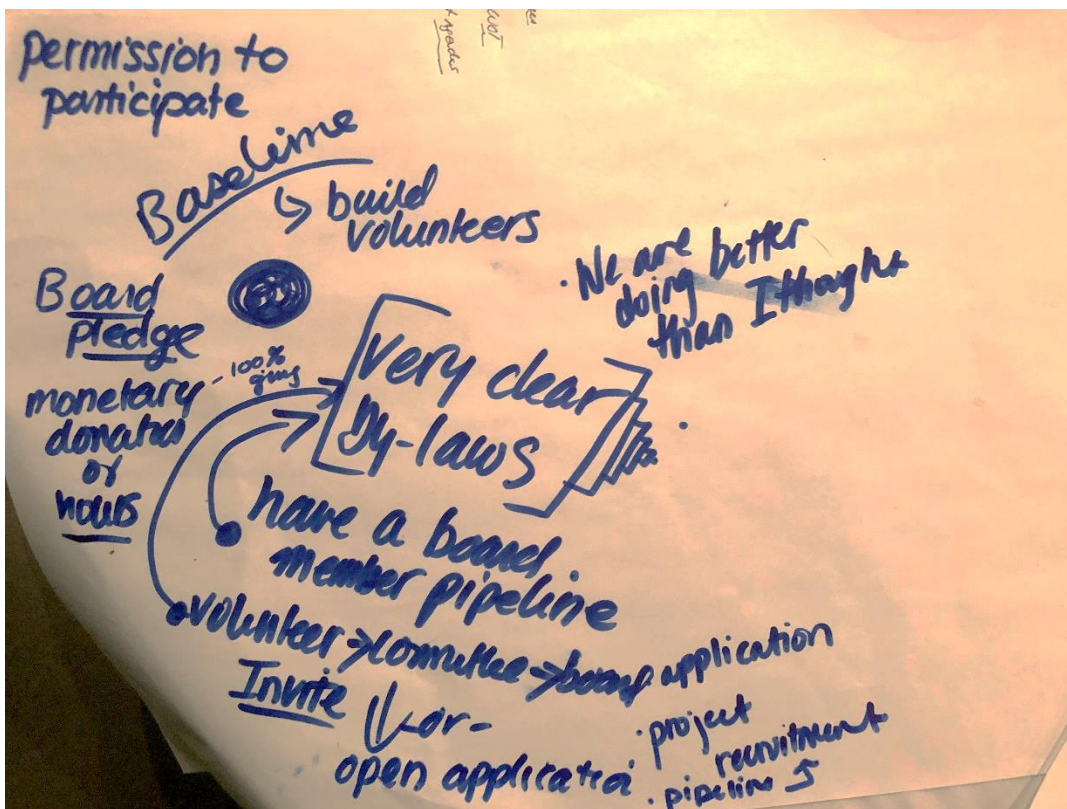 permission to
participate
Baseline
↳ build
volunteers
Board
pledge
monetary
- 100%
giving
or
hours
• We are
doing better
than I thought
Very clear
By-laws
have a board
member pipeline
volunteer → committee → board application
Invite
- or -
open application
• project
recruitment
• pipeline
NOT